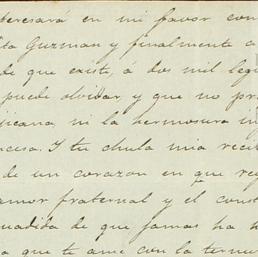 teresará en mi favor con
la Guzman y finalmente a
de que existe, á dos mil leg
puede olvidar, y que no pr
icana ni la hermosura in
ncesa. Y tu chula mia reci
de un corazon en que re
amor fraternal y el const
suadida de que jamas ha t
a que te ame con la ternu